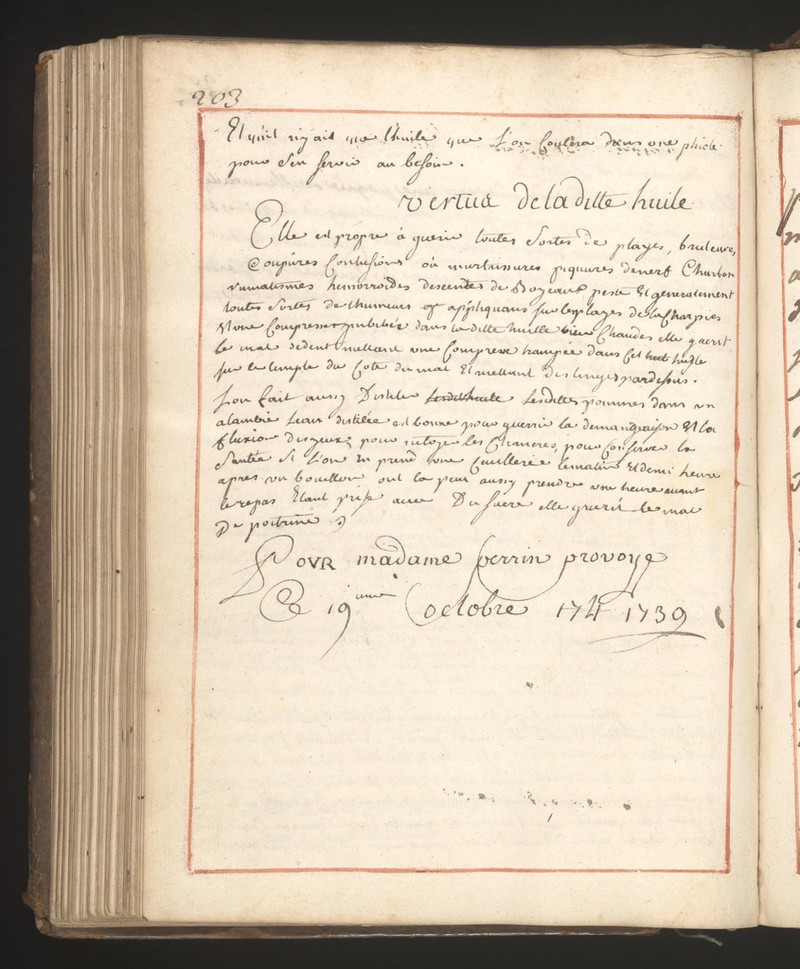 203
Et qu'il n'y ait que l'huile que l'on Coulera dans une phiole
pour s'en servir au besoin.
vertus de la ditte huile
Elle est propre à guerir toutes Sortes de playes, bruleures,
Coupures Contusions ou murtrissures piquures de nerf Charbon
rumatismes hemorroides descentes de Boyeaux peste Et generalement
toutes Sortes de thumeurs appliquans sur les playes de la Charpies
Et une Compresse imbibée dans la ditte huille bien Chaudes elle guerit
le mal de dent mettant une Compresse trampée dans Cet huille
sur le temple du Coté du mal Et mettant des linges par dessus.
L'on fait aussy Distiler les dittes pommes dans un
alambic Leau distilée est bonne pour guerrir la demangeaison Et la
fluxion des yeux, pour pour Conserver la
Santée Si L'on En prend une Cuillerée le matin Et demi heure
apres un bouillon ont la peut aussy prendre une heure avant
le repas Etant prise avec Du sucre elle guerit le mal
De poitrine
POVR madame perrin provoye
Ce 19 octobre 174 1739